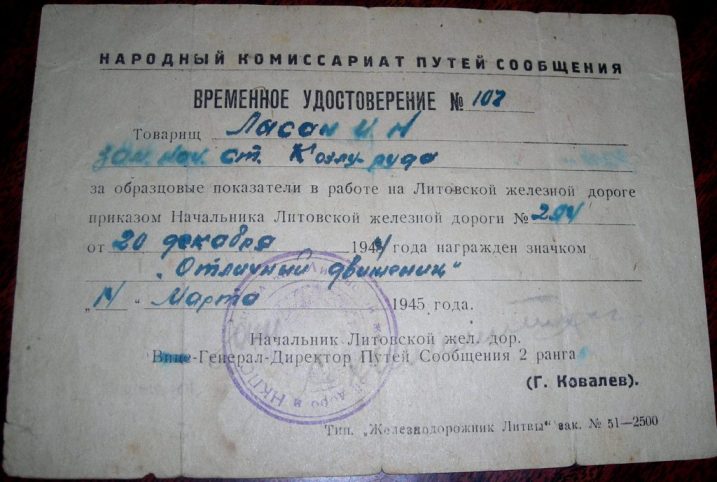 НАРОДНЫЙ КОМИССАРИАТ ПУТЕЙ СООБЩЕНИЯ
ВРЕМЕННОЕ УДОСТОВЕРЕНИЕ № 102
Товарищ Ласан И Н
зам. нач. ст. Козлу-руда
за образцовые показатели в работе на Литовской железной дороге
приказом Начальника Литовской железной дороги № 294
от 20 декабря 1944 года награжден значком
„Отличный движенец“
„14“ Марта 1945 года.
Начальник Литовской жел. дор.
Вице-Генерал-Директор Путей Сообщения 2 ранга
(Г. Ковалев).
Тип. „Железнодорожник Литвы“ зак. № 51—2500
НКПС